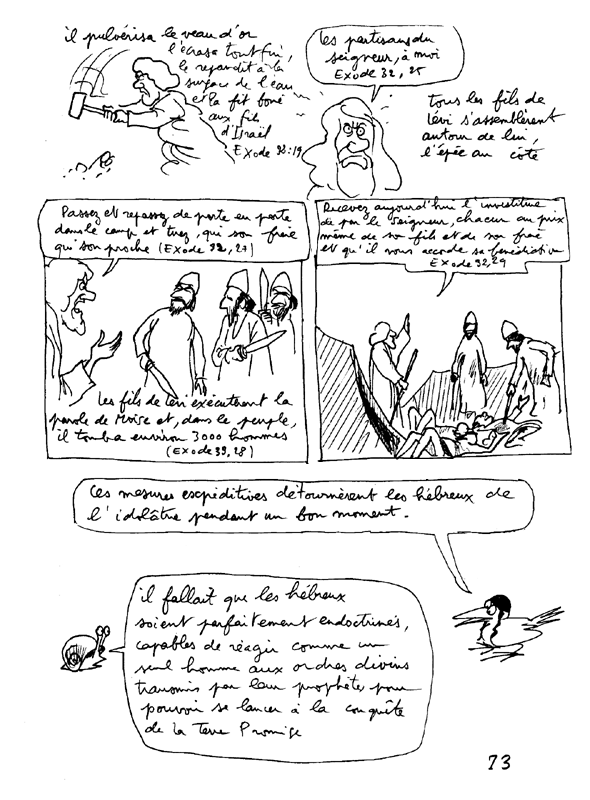 il pulvérisa le veau d'or
l'écrasa tout fin,
le répandit à la
surface de l'eau
et la fit boire
aux fils
d'Israël
Exode 32:19
les partisans du
seigneur, à moi
Exode 32, 25
tous les fils de
Lévi s'assemblèrent
autour de lui,
l'épée au côté
Passez et repassez de porte en porte
dans le camp et tuez, qui son frère
qui son proche (Exode 32, 27)
les fils de Lévi exécutèrent la
parole de Moïse et, dans le peuple,
il tomba environ 3000 hommes
(Exode 39, 28)
Recevez aujourd'hui l'investiture
de par le Seigneur, chacun au prix
même de son fils et de son frère
et qu'il vous accorde sa bénédiction
Exode 32, 29
Ces mesures escpéditives détournèrent les hébreux de
l'idolâtrie pendant un bon moment.
il fallait que les hébreux
soient parfaitement endoctrinés,
capables de réagir comme un
seul homme aux ordres divins
transmis par leur prophète, pour
pouvoir se lancer à la conquête
de la Terre Promise
73